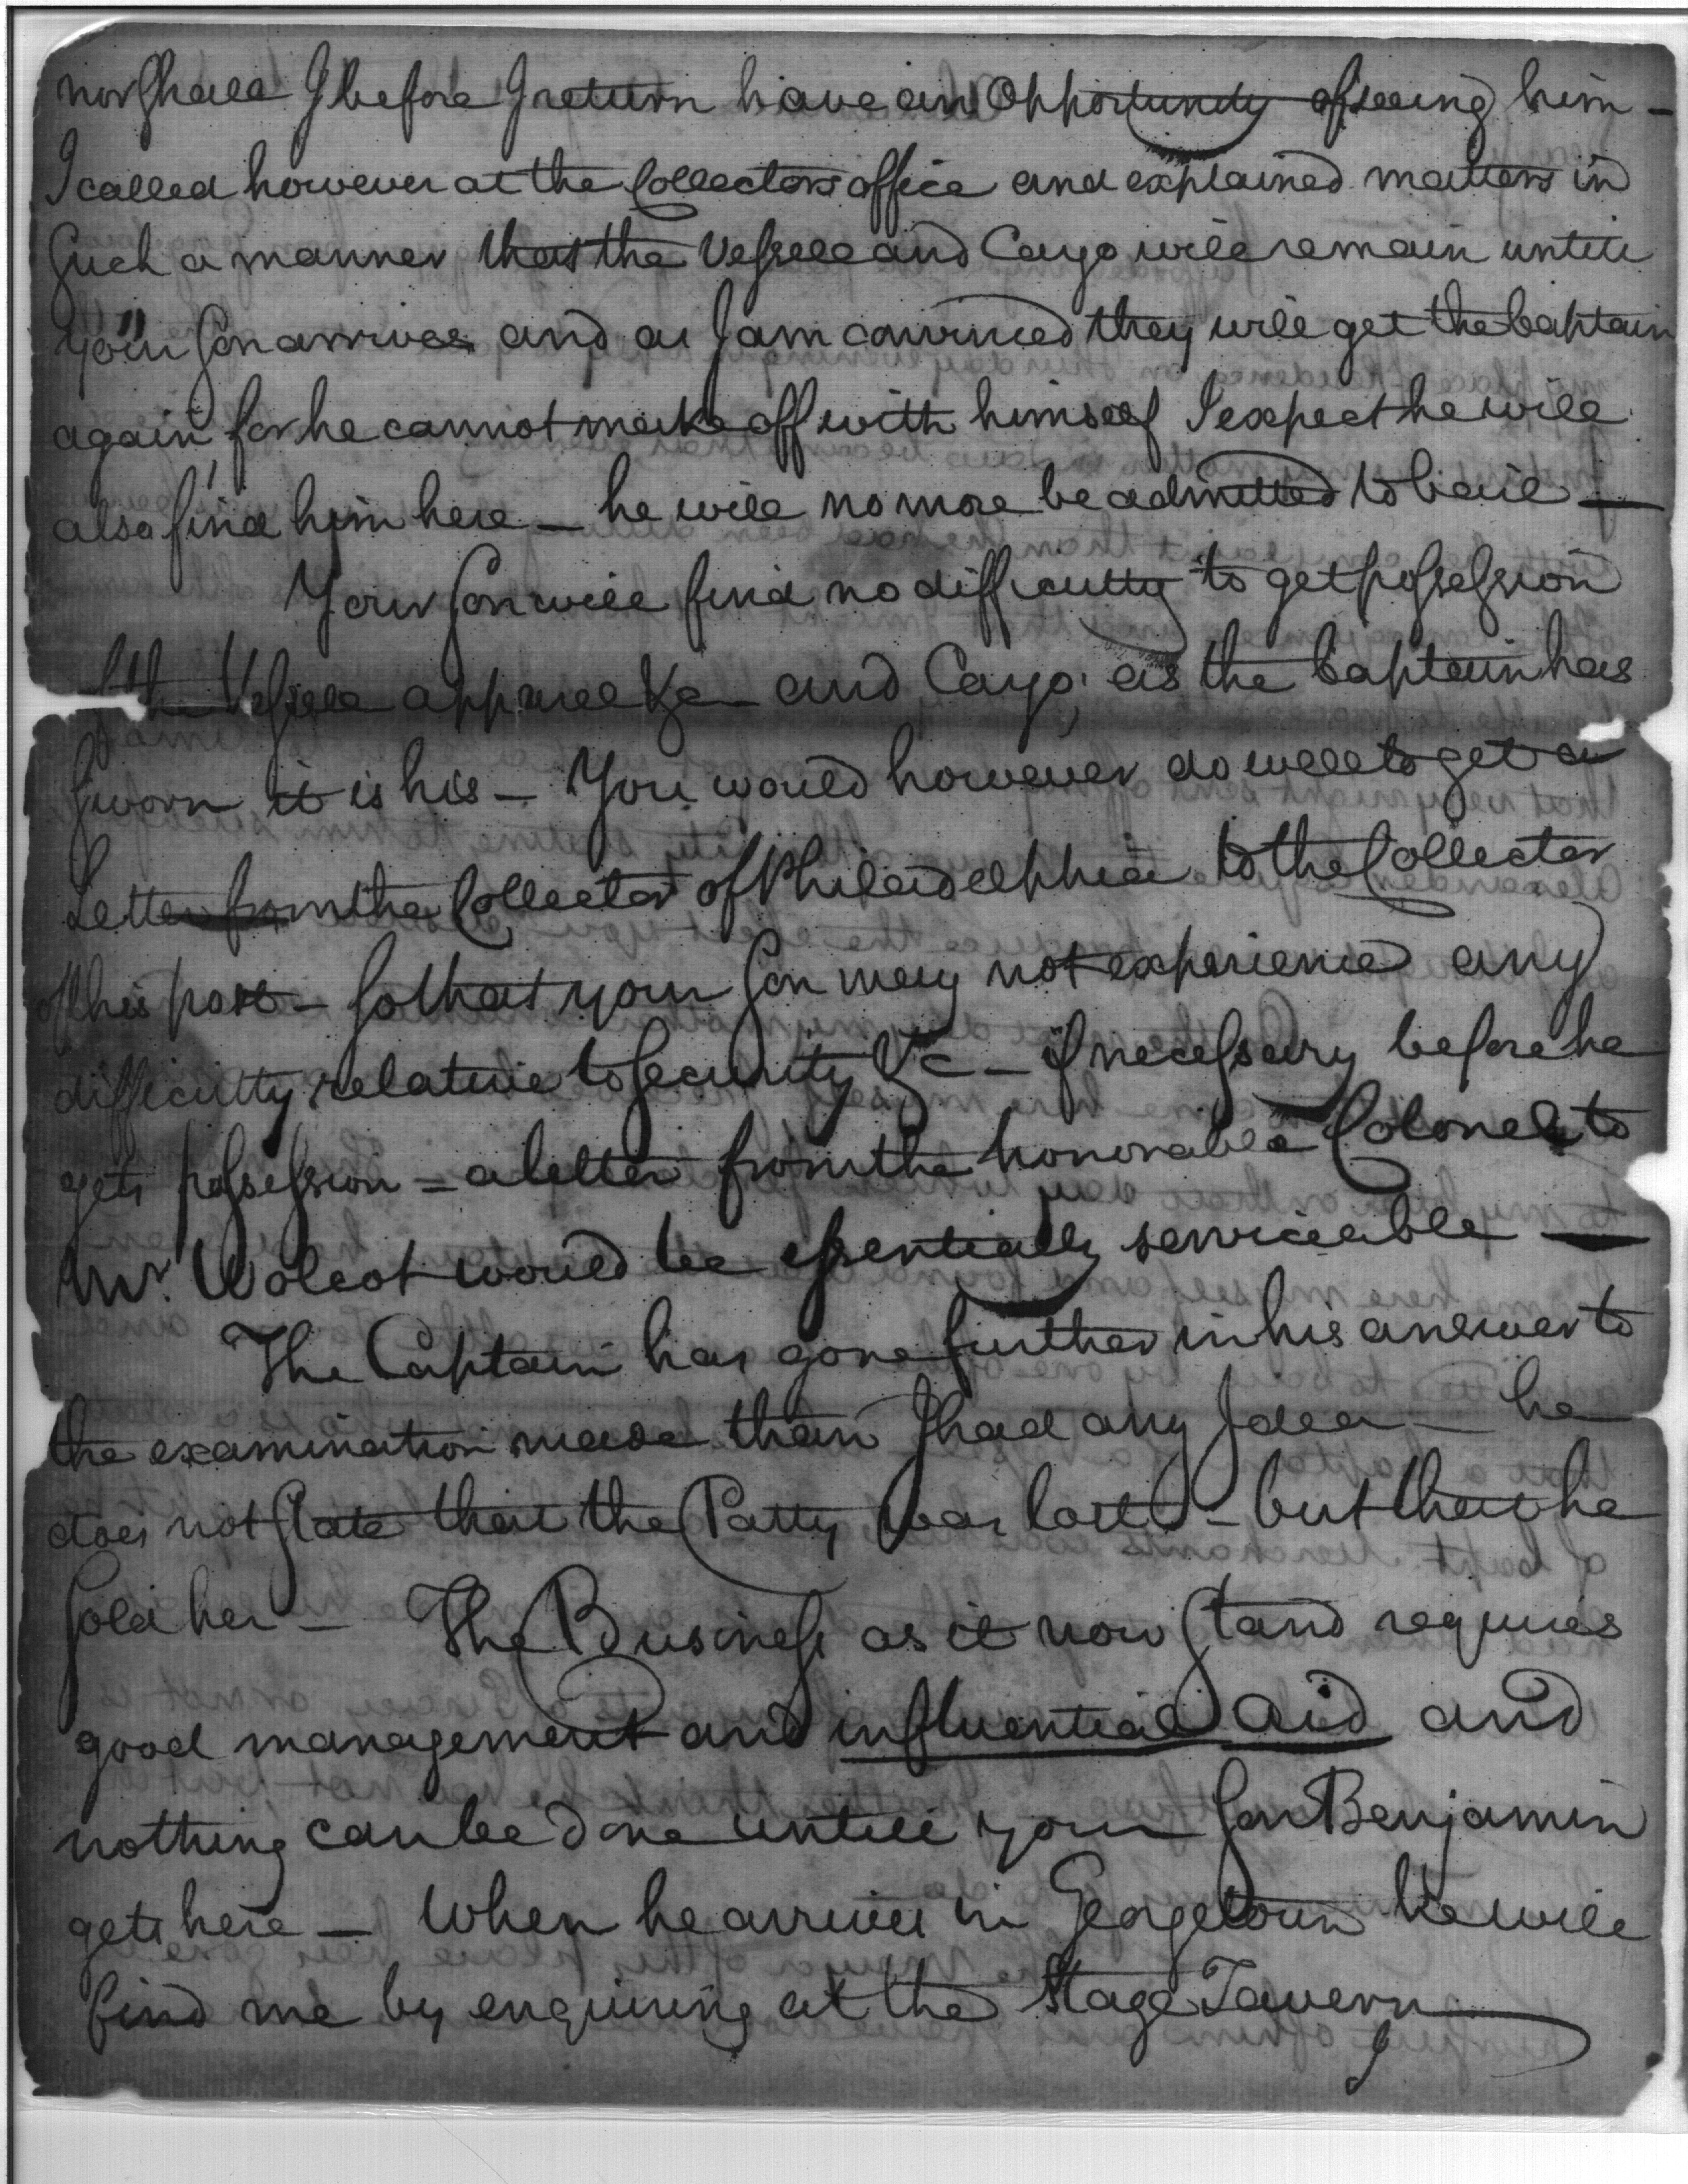 nor shall I before I return have an Opportunity of seeing him –
I called however at the Collectors office and explained matters in
Such a manner that the Vessell and Cargo will remain untill
your Son arrives and as I am convinced they will get the Captain
again, for he cannot make off with himself I expect he will
also find him here – he will no more be admitted to bail –
Your Son will find no difficulty to get possession
of the Vessell apparell &c – and Cargo; as the Captain has
Sworn it is his – You would however do well to get a
Letter from the Collector of Philadelphia to the Collector
of this port – So that your Son may not experience any
difficulty relative to Security &c – if necessary before he
gets possession = a letter from the honorable Colonel to
Mr. Wolcot would be essentially serviceable –
The Captain has gone further in his answer to
the examination made than I had any Idea – he
does not State that the Patty was lost – but that he
Sold her – The Business as it now Stand requires
good management and influential aid and
nothing can be done untill your Son Benjamin
gets here – When he arrives in Georgetown he will
find me by enquiring at the Stage Tavern
I